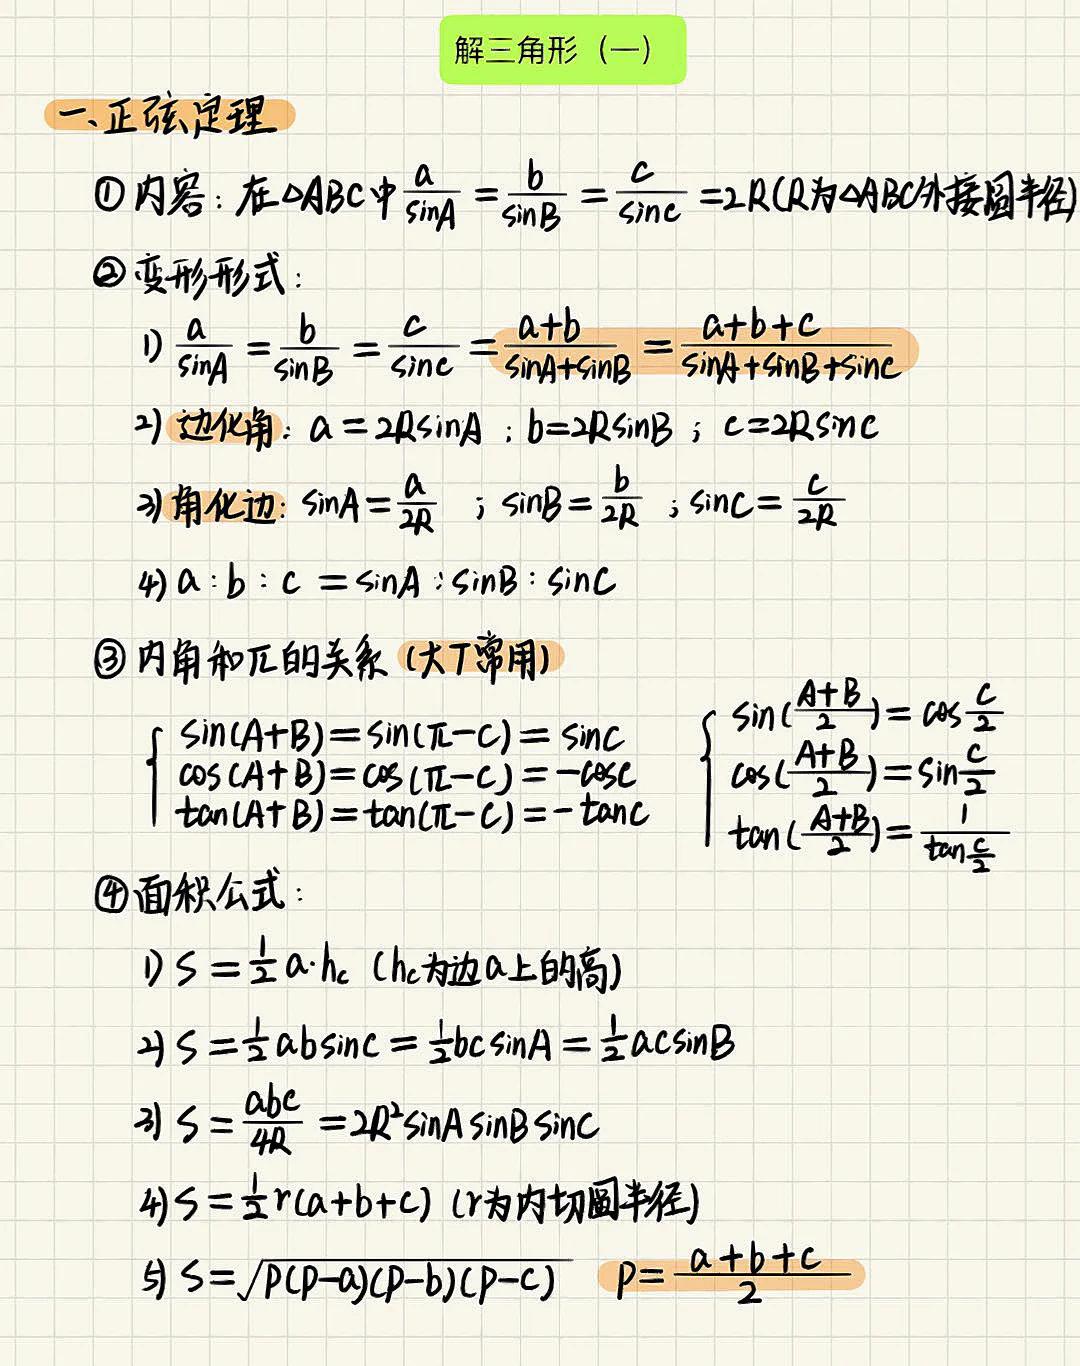 解三角形（一）
一、正弦定理
① 内容：在△ABC中 a/sinA = b/sinB = c/sinc = 2R(R为△ABC外接圆半径)
② 变形形式：
1) a/sinA = b/sinB = c/sinc = a+b/sinA+sinB = a+b+c/sinA+sinB+sinc
2) 边化角：a=2RsinA ; b=2RsinB ; c=2Rsinc
3) 角化边：sinA=a/2R ; sinB=b/2R ; sinC=c/2R
4) a:b:c = sinA:sinB:sinC
③ 内角和π的关系 (大T常用)
sin(A+B)=sin(π-C)=sinc
cos(A+B)=cos(π-C)=-cosc
tan(A+B)=tan(π-C)=-tanc
sin(A+B/2)=cos c/2
cos(A+B/2)=sin c/2
tan(A+B/2)=1/tan c/2
④ 面积公式：
1) S=1/2 a·hc (hc为边a上的高)
2) S=1/2 absinc=1/2 bcsinA=1/2 acsinB
3) S=abc/4R=2R²sinAsinBsinC
4) S=1/2 r(a+b+c) (r为内切圆半径)
5) S=√P(P-a)(P-b)(P-c) P=a+b+c/2